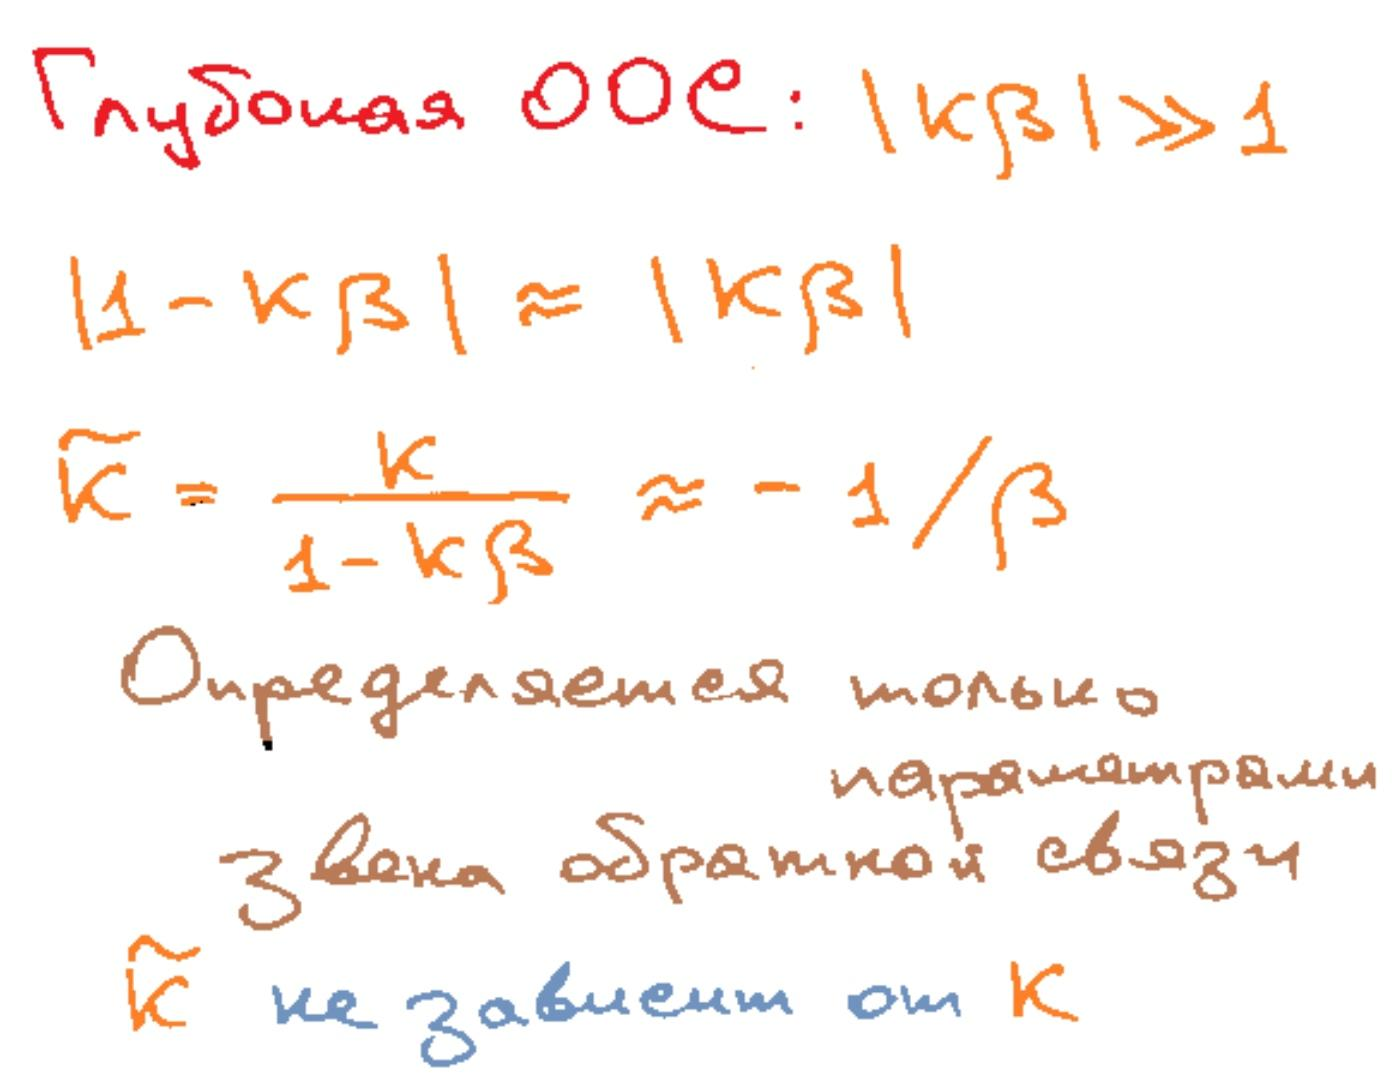 Глубокая ООС: |Kβ| ≫ 1
|1 - Kβ| ≈ |Kβ|
K̃ = K / (1 - Kβ) ≈ - 1/β
Определяется только
параметрами
звена обратной связи
K̃ не зависит от K